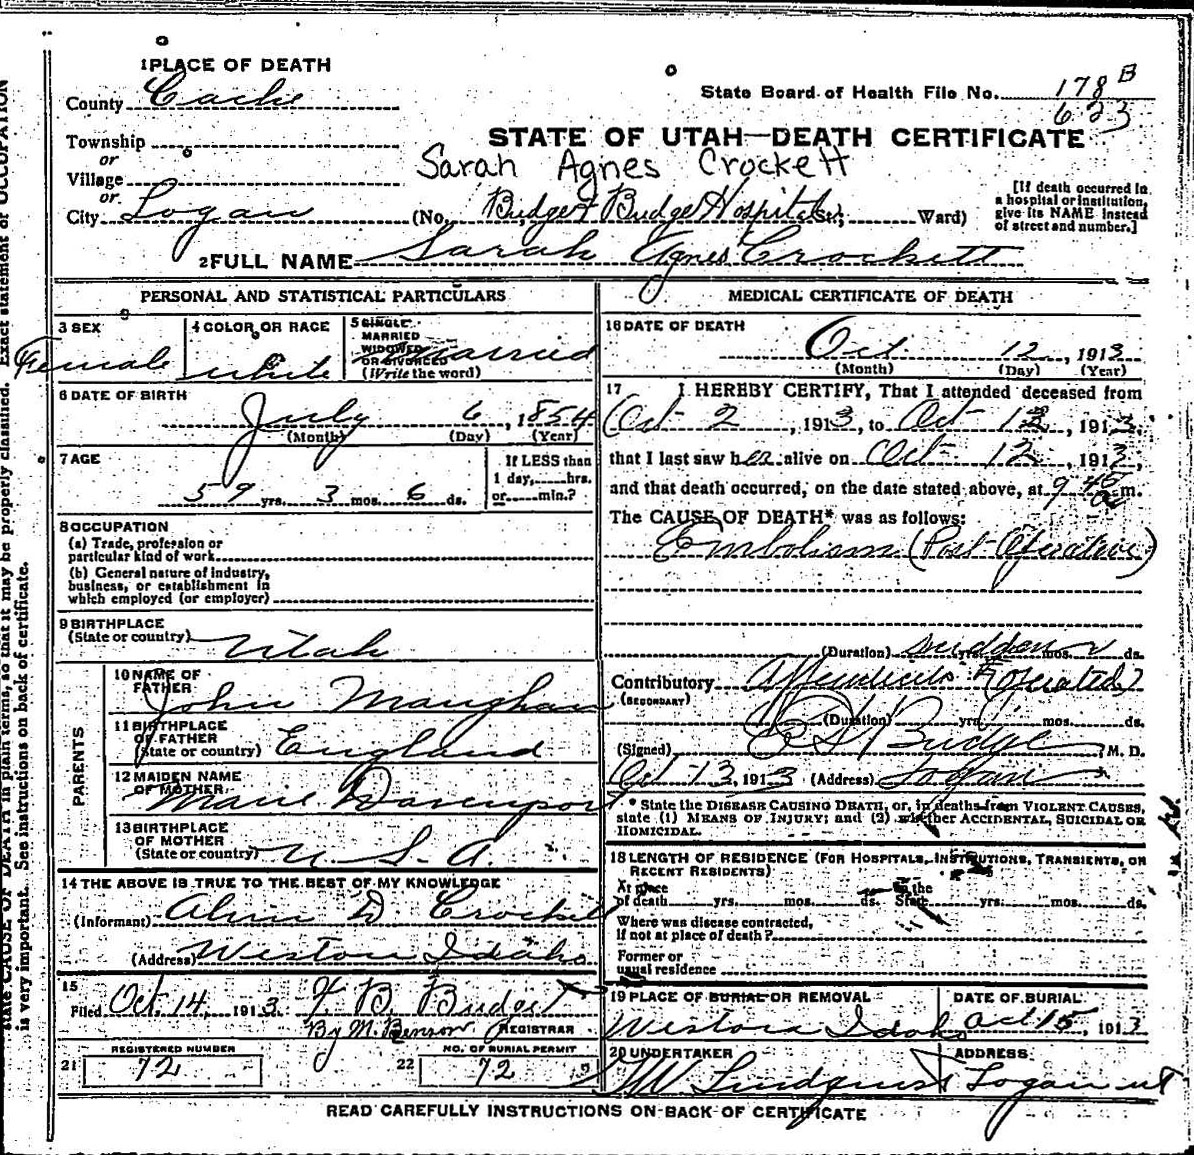 1 PLACE OF DEATH
County Cache
State Board of Health File No. 178 B
623
Township
or
STATE OF UTAH—DEATH CERTIFICATE
Sarah Agnes Crockett
Village
or
City Logan (No. Budge & Budge Hospital St.; Ward)
[If death occurred in
a hospital or institution,
give its NAME instead
of street and number.]
2 FULL NAME Sarah Agnes Crockett
PERSONAL AND STATISTICAL PARTICULARS
3 SEX
Female
4 COLOR OR RACE
White
5 SINGLE
MARRIED
WIDOWED
OR DIVORCED
(Write the word)
Married
6 DATE OF BIRTH
July 6, 1854
(Month) (Day) (Year)
7 AGE
59 yrs. 3 mos. 6 ds.
If LESS than
1 day, hrs.
or min.?
8 OCCUPATION
(a) Trade, profession or
particular kind of work
(b) General nature of industry,
business, or establishment in
which employed (or employer)
9 BIRTHPLACE
(State or country) Utah
PARENTS
10 NAME OF
FATHER
John Maughan
11 BIRTHPLACE
OF FATHER
(State or country) England
12 MAIDEN NAME
OF MOTHER
Marie Davenport
13 BIRTHPLACE
OF MOTHER
(State or country) U. S. A.
14 THE ABOVE IS TRUE TO THE BEST OF MY KNOWLEDGE
(Informant) D. Crockett
(Address) Weston Idaho
15
Filed Oct. 14, 1913
By M. Benson REGISTRAR
REGISTERED NUMBER
21 72
NO. OF BURIAL PERMIT
22 72
MEDICAL CERTIFICATE OF DEATH
16 DATE OF DEATH
Oct. 12, 1913
(Month) (Day) (Year)
17 I HEREBY CERTIFY, That I attended deceased from
Oct 2, 1913, to Oct 12, 1913,
that I last saw her alive on Oct 12, 1913,
and that death occurred, on the date stated above, at 9 45 a m.
The CAUSE OF DEATH* was as follows:
Embolism (Post Operative)
(Duration) sudden yrs. mos. ds.
Contributory Appendicitis (Operated)
(SECONDARY)
(Duration) yrs. mos. ds.
(Signed) Budge, M. D.
Oct 13, 1913 (Address) Logan
* State the DISEASE CAUSING DEATH, or, in deaths from VIOLENT CAUSES,
state (1) MEANS OF INJURY; and (2) whether ACCIDENTAL, SUICIDAL OR
HOMICIDAL.
18 LENGTH OF RESIDENCE (FOR HOSPITALS, INSTITUTIONS, TRANSIENTS, OR
RECENT RESIDENTS)
At place
of death yrs. mos. ds.
In the
State yrs. mos. ds.
Where was disease contracted,
if not at place of death?
Former or
usual residence
19 PLACE OF BURIAL OR REMOVAL
Weston Idaho
DATE OF BURIAL
Oct 15, 1913
20 UNDERTAKER
Lindquist
ADDRESS
Logan ut
READ CAREFULLY INSTRUCTIONS ON BACK OF CERTIFICATE
state CAUSE OF DEATH in plain terms, so that it may be properly classified. Exact statement of OCCUPATION
is very important. See instructions on back of certificate.